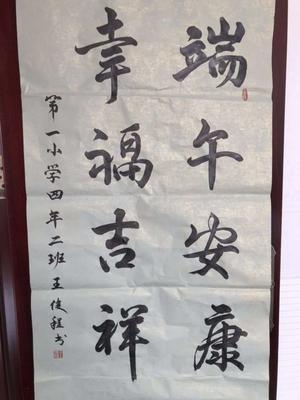 端午安康
幸福吉祥
第一小学四年二班王俊程书